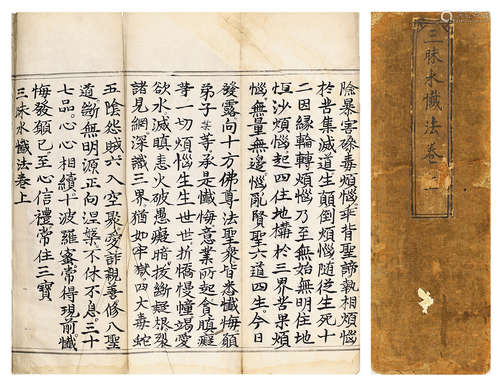 三昧水懺法卷上
險暴害磣毒煩惱乖背聖諦執相煩惱
於苦集滅道生顛倒煩惱隨從生死十
二因緣輪轉煩惱乃至無始無明住地
恒沙煩惱起四住地構於三界苦果煩
惱無量無邊惱亂賢聖六道四生今日
發露向十方佛尊法聖衆皆悉懺悔願
弟子某等承是懺悔意業所起貪瞋癡
等一切煩惱生生世世折憍慢幢竭愛
欲水滅瞋恚火破愚癡暗拔斷疑根裂
諸見網深識三界猶如牢獄四大毒蛇
五陰怨賊六入空聚愛詐親善修八聖
道斷無明源正向涅槃不休不息三十
七品心心相續十波羅蜜常得現前懺
悔發願已至心信禮常住三寶
三昧水懺法卷上